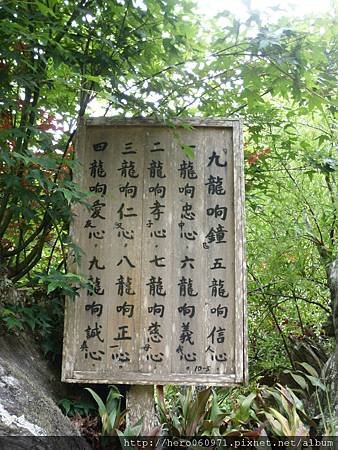 九龍响鐘 五龍响信心
一龍响忠心。六龍响義心
二龍响孝心。七龍响慈心
三龍响仁心。八龍响正心
四龍响愛心。九龍响誠心
10-5
http://hero060971.pixnet.net/album